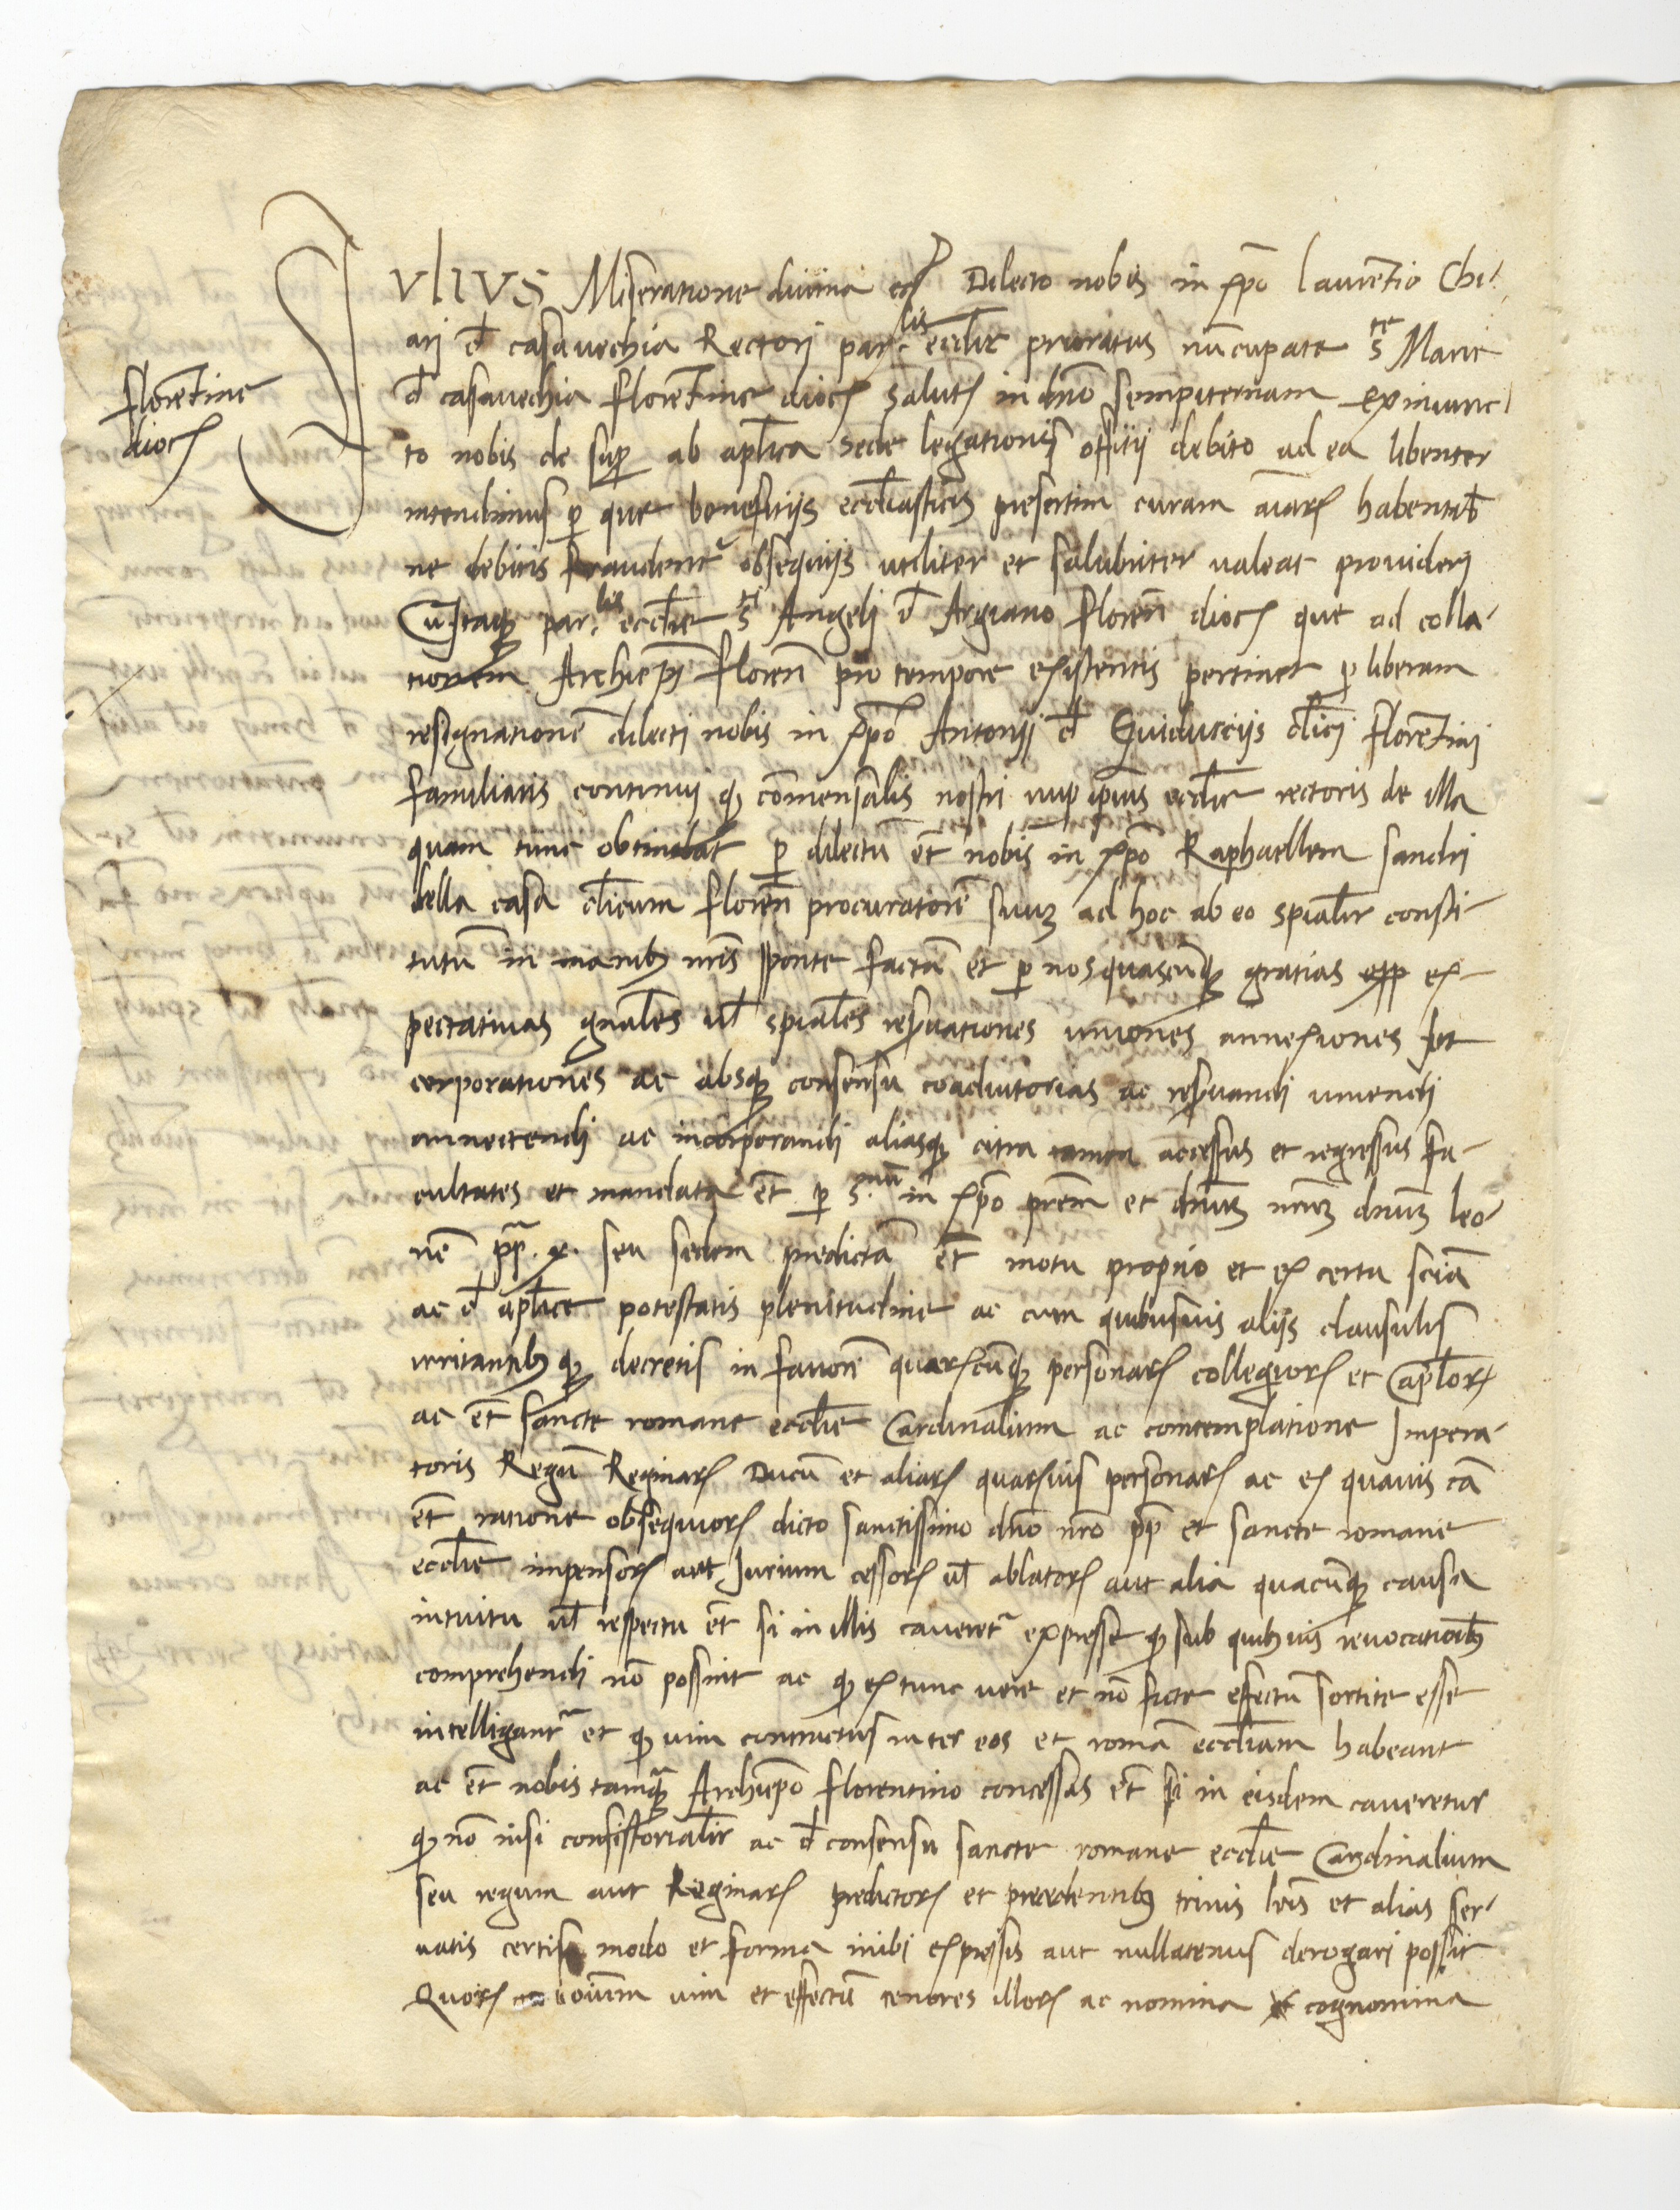 IVLIVS Miseratione diuina etc. Dilecto nobis in xp̄o laurētio Chi-
arj đ casauechia Rectorj par.lis eccl̄ie prioratus nūcupate S.te Marie
florētine
dioc̣
đ casauechia florētine dioc̣ salut̄ in dn̄o sempiternam Ex iniunc-
to nobis de sup̄ ab apl̄ica sede legationis offitij debito ad ea libenter
intendimus ꝑ que benefitijs eccl̄iasticis presertim curam aīaꝝ habentib
ne debitis fraudent᷑ obsequijs vtiliter et salubriter valeat prouiderj
Cū Itaqꝫ par.lis eccl̄ie S.ti Angelj đ Argiano floren̄ dioc̣ que ad colla-
tionem Archiep̄i floren̄ pro tempore existentis pertinet ꝑ liberam
resignationē dilecti nobis in xp̄o Antonij đ Guiducciis cl̄icj florētinj
familiaris continuj qꝫ cōmensalis nostri nup̄ ipsius eccl̄ie rectoris de illa
quam tunc obtinebat ꝑ dilectū et̄ nobis in xp̄o Raphaellem sandri
della casa cl̄icum floren̄ procuratorē suuꝫ ad hoc ab eo spial̄r consti-
tutū in manibꝫ nr̄is sponte factā et ꝑ nos quascūqꝫ gratias exp ex-
pectatiuas gnāles vl̄ spiales reꝑuationes vniones annexiones Int
corporationes ac absqꝫ consensu coadiutorias ac reꝑuandi vniendi
annectendj ac incorporandi aliasqꝫ citra tamen accessus et regressus fa-
cultates et mandata et̄ ꝑ S.mū in xp̄o prēm et dn̄uꝫ nr̄uꝫ dn̄uꝫ leo-
nē pp̄. x. seu sedem predictā et̄ motu proprio et ex certa sciā
ac đ apl̄ice potestatis plenitudine ac cum quibusuis alijs clausulis
irritantibꝫ qꝫ decretis in fauorē quaꝝcūqꝫ personaꝝ collegioꝝ et Capl̄oꝝ
ac et̄ sancte romane eccl̄ie Cardinalium ac contemplatione Impera-
toris Regū Reginaꝝ Ducū et aliaꝝ quaꝝuis personaꝝ ac ex quauis cā
et̄ ratione obsequioꝝ dicto sanctissimo dn̄o nr̄o pp̄ et sancte romane
eccl̄ie impensoꝝ aut Iurium cessoꝝ vl̄ ablatoꝝ aut alia quacūqꝫ causa
intuitu vl̄ respectu et̄ si in illis caueret᷑ expresse qꝫ sub quibꝫuis reuocationibꝫ
comprehendi nō possint ac qꝫ ex tunc vere et nō ficte effectū sortite esse
intelligant᷑ et qꝫ uim contractus inter eos et romā eccl̄iam habeant
ac et̄ nobis tamqꝫ Archiepō florentino concessas et̄ si in eisdem caueretur
qꝫ nō nisi consistorial̄r ac đ consensu sancte romane eccl̄ie Cardinalium
seu regum aut Reginaꝝ predictoꝝ et precedentibꝫ trinis lr̄is et alias ser-
uatis certis modo et forma inibi expressis aut nullatenus derogari possit
Quoꝝ oīum uim et effectū tenores illoꝝ ac nomina et cognomina